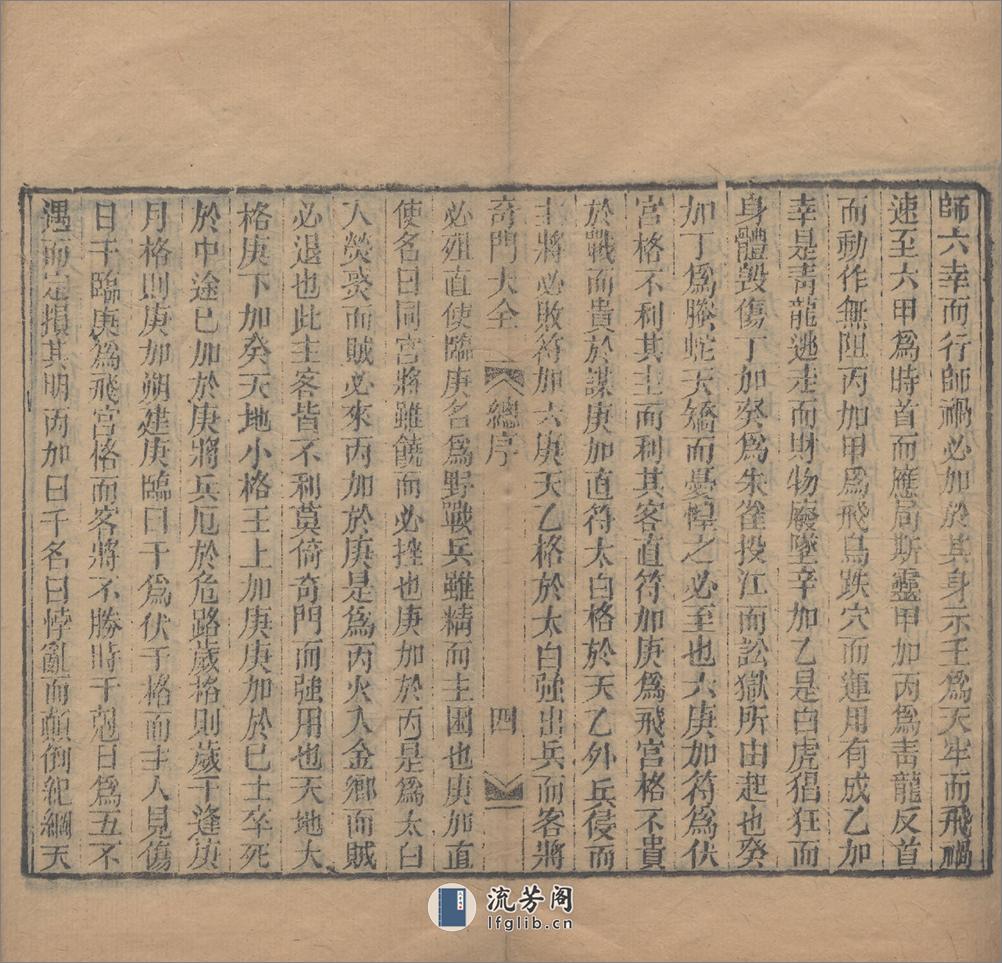 師六幸而行師禍必加於其身示壬爲天牢而飛禍
速至六甲爲時首而應局斯靈甲加丙爲靑龍反首
而動作無阻丙加甲爲飛鳥跌穴而運用有成乙加
幸是靑龍逃走而財物廢墜辛加乙是白虎猖狂而
身體毀傷丁加癸爲朱雀投江而訟獄所由起也癸
加丁爲螣蛇夭矯而憂惶之必至也六庚加符爲伏
宮格不利其主而利其客直符加庚爲飛宮格不貴
於戰而貴於謀庚加直符太白格於天乙外兵侵而
主將必敗符加六庚天乙格於太白強出兵而客將
奇門大全 總序 四
必殂直使臨庚名爲野戰兵雖精而主困也庚加直
使名曰同宮將雖饒而必挫也庚加於丙是爲太白
入熒熒而賊必來丙加於庚是爲丙火入金鄉而賊
必退也此主客皆不利莫倚奇門而強用也天地大
格庚下加癸天地小格壬上加庚庚加於巳士卒死
於中途巳加於庚將兵厄於危路歲格則歲干逢庚
月格則庚加朔建庚臨日干爲伏干格而主人見傷
日干臨庚爲飛宮格而客將不勝時干剋日爲五不
遇而定損其明丙加日千名曰悖亂而顛倒紀綱天
流芳阁
lfglib.cn